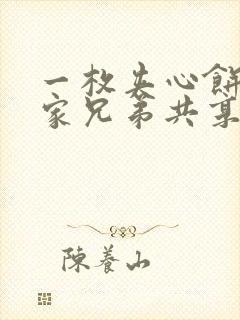 一枚夹心餅
家兄弟共享
陳養山